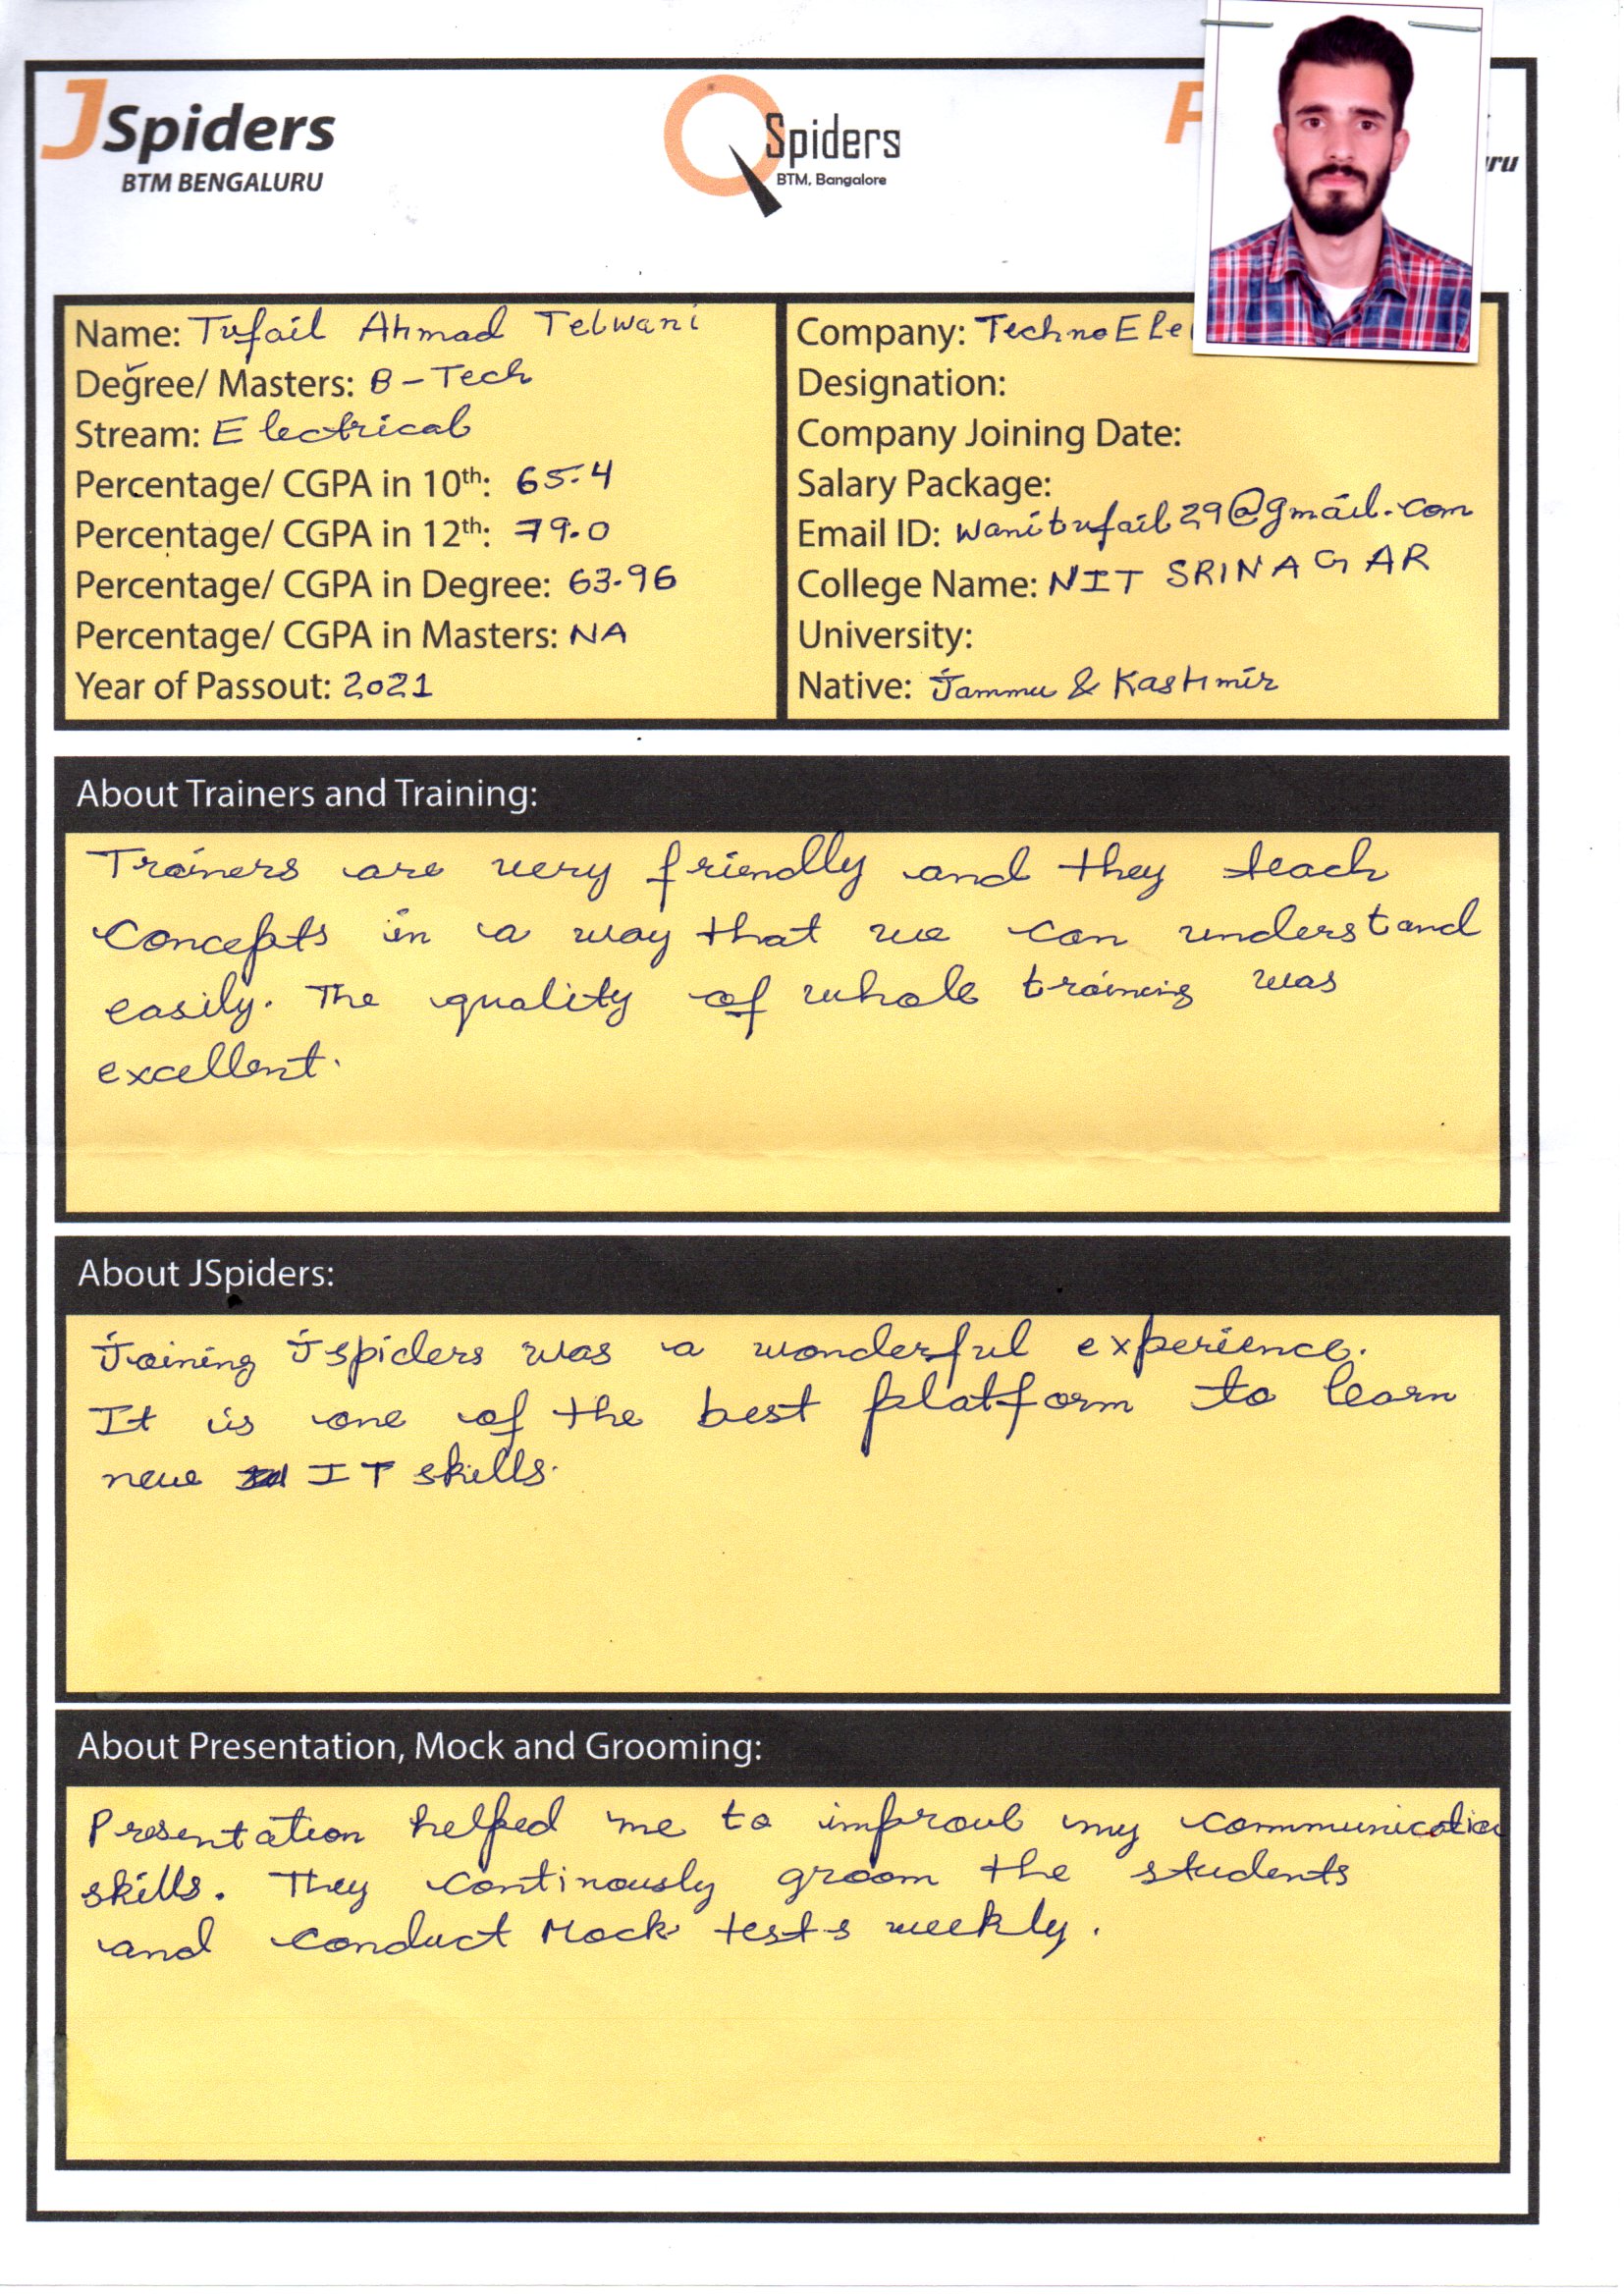 JSpiders
BTM BENGALURU
QSpiders
BTM, Bangalore
Name: Tufail Ahmad Telwani
Degree/ Masters: B-Tech
Stream: Electrical
Percentage/ CGPA in 10th: 65.4
Percentage/ CGPA in 12th: 79.0
Percentage/ CGPA in Degree: 63.96
Percentage/ CGPA in Masters: NA
Year of Passout: 2021
Company: TechnoEle
Designation:
Company Joining Date:
Salary Package:
Email ID: wanitufail29@gmail.com
College Name: NIT SRINAGAR
University:
Native: Jammu & Kashmir
About Trainers and Training:
Trainers are very friendly and they teach
concepts in a way that we can understand
easily. The quality of whole training was
excellent.
About JSpiders:
Joining Jspiders was a wonderful experience.
It is one of the best platform to learn
new IT skills.
About Presentation, Mock and Grooming:
Presentation helped me to improve my communication
skills. They continously groom the students
and conduct Mock tests weekly.